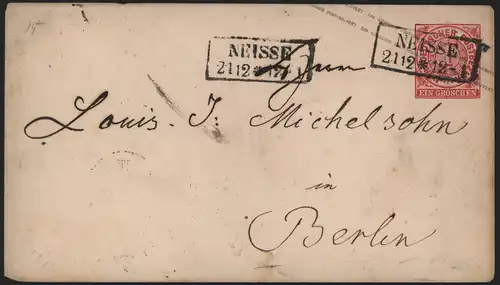 NEISSE
21 12 * 12-1
NEISSE
21 12 * 12-1
EIN GROSCHEN
Louis. J. Michelsohn
in
Berlin